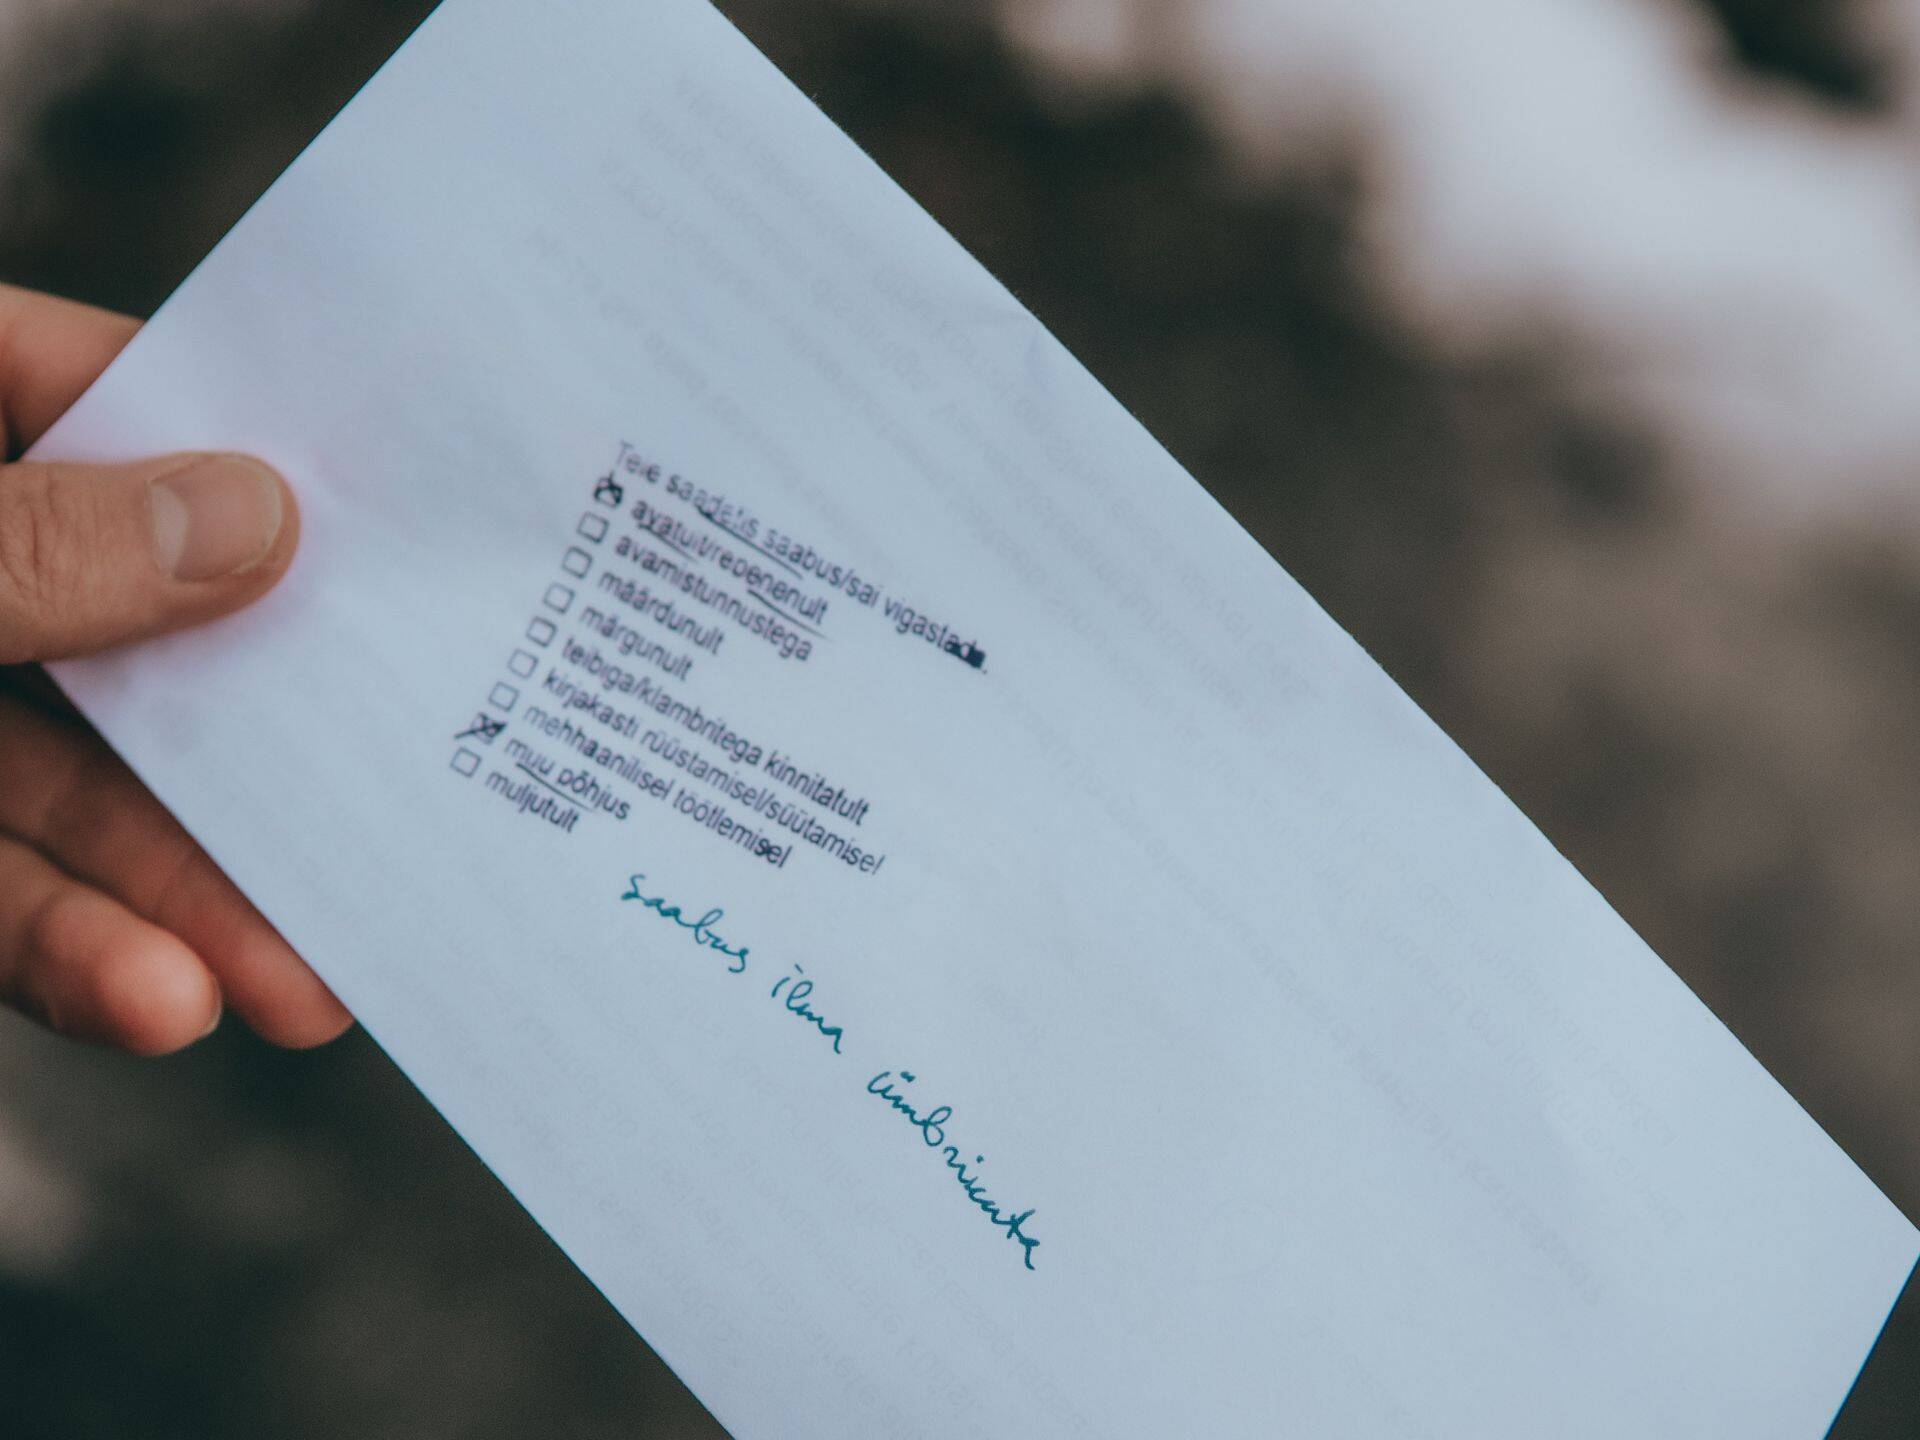 Teie saadetis saabus/sai vigastada.
avatult/rebenenult
avamistunnustega
määrdunult
märgunult
teibiga/klambritega kinnitatult
kirjakasti rüüstamisel/süütamisel
mehhaanilisel töötlemisel
muu põhjus
muljutult
saabus ilma ümbrikuta